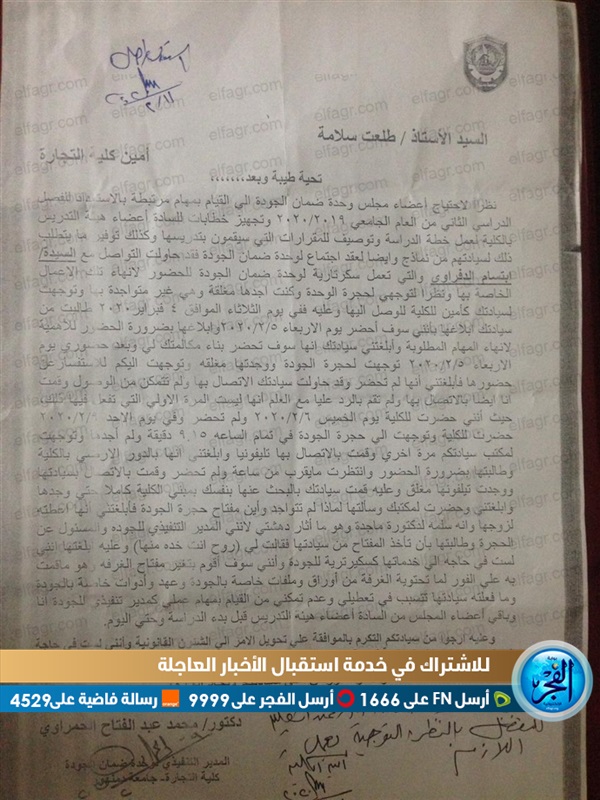 السيد الأستاذ / طلعت سلامة
أمين كلية التجارة
تحية طيبة وبعد،،،،،،
نظرا لاحتياج أعضاء مجلس وحدة ضمان الجودة الي القيام بمهام مرتبطة بالاستعداد للفصل
الدراسي الثاني من العام الجامعي ٢٠٢٠/٢٠١٩ وتجهيز خطابات للسادة أعضاء هيئة التدريس
بالكلية لعمل خطة الدراسة وتوصيف للمقررات التي سيقمون بتدريسها وكذلك توفير ما يتطلب
ذلك لسيادتهم من نماذج وايضا لعقد اجتماع لوحدة ضمان الجودة فقد حاولت التواصل مع السيدة/
ابتسام الدفراوي والتي تعمل سكرتارية لوحدة ضمان الجودة للحضور لانهاء تلك الاعمال
الخاصة بها ونظرا لتوجهي لحجرة الوحدة وكنت أجدها مغلقة وهي غير متواجدة بها وتوجهت
لسيادتك كأمين للكلية للوصل اليها وعليه ففي يوم الثلاثاء الموافق ٤ فبراير ٢٠٢٠ طالبت من
سيادتك ابلاغها بأنني سوف أحضر يوم الاربعاء ٢٠٢٠/٢/٥ وابلاغها بضرورة الحضور للأهمية
لانهاء المهام المطلوبة وأبلغتني سيادتك إنها سوف تحضر بناء مكالمتك لي وبعد حضوري يوم
الاربعاء ٢٠٢٠/٢/٥ توجهت لحجرة الجودة ووجدتها مغلقه وتوجهت اليكم للاستفسار عن
حضورها فأبلغتني أنها لم تحضر وقد حاولت سيادتك الاتصال بها ولم تتمكن من الوصول وقمت
أنا ايضا بالاتصال بها ولم تقم بالرد عليا مع العلم أنها ليست المرة الاولي التي تفعل فيها ذلك
حيث أنني حضرت للكلية يوم الخميس ٢٠٢٠/٢/٦ ولم تحضر وفي يوم الاحد
حضرت للكلية وتوجهت الي حجرة الجودة في تمام الساعه ٩.١٥ دقيقة ولم أجدها وتوجهت
لمكتب سيادتكم مرة اخري وقمت بالاتصال بها تليفونيا وابلغتني أنها بالدور الارضي بالكلية
وطالبتها بضرورة الحضور وانتظرت مايقرب من ساعة ولم تحضر وقمت بالاتصال بسيادتها
ووجدت تيلفونها مغلق وعليه قمت سيادتك بالبحث عنها بنفسك بمبني الكلية كاملا حتي وجدها
وابلغتني وحضرت لمكتبك وسألتها لماذا لم تتواجد وأين مفتاح حجرة الجودة فأبلغتني أنها اعطته
لزوجها وانه سلمه لدكتورة ماجدة وهو ما أثار دهشتي لانني المدير التنفيذي للجوده والمسئول عن
الحجرة وطالبتها بأن تأخذ المفتاح من سيادتها فقالت لي (روح انت خده منها) وعليه ابلغتها أنني
لست في حاجه الي خدماتها كسكيرتيرية للجودة وأنني سوف أقوم بتغير مفتاح الغرفه وهو ماقمت
به علي الفور لما تحتويه الغرفة من أوراق وملفات خاصة بالجودة وعهد وأدوات خاصة بالجودة
وما فعلته سيادتها تتسبب في تعطيلي وعدم تمكني من القيام بمهام عملي كمدير تنفيذي للجودة أنا
وباقي أعضاء المجلس من السادة أعضاء هيئة التدريس قبل بدء الدراسة وحتي اليوم.
وعليه أرجوا من سيادتكم التكرم بالموافقة علي تحويل الامر الي الشئون القانونية وأنني لست في حاجة
للاشتراك في خدمة استقبال الأخبار العاجلة
أرسل FN على 1666 أرسل الفجر على 9999 رسالة فاضية على 4529
بوابة الفجر
دكتور/ محمد عبد الفتاح الحمراوي
المدير التنفيذي لوحدة ضمان الجودة
كلية التجارة- جامعة دمنهور
elfagr.com